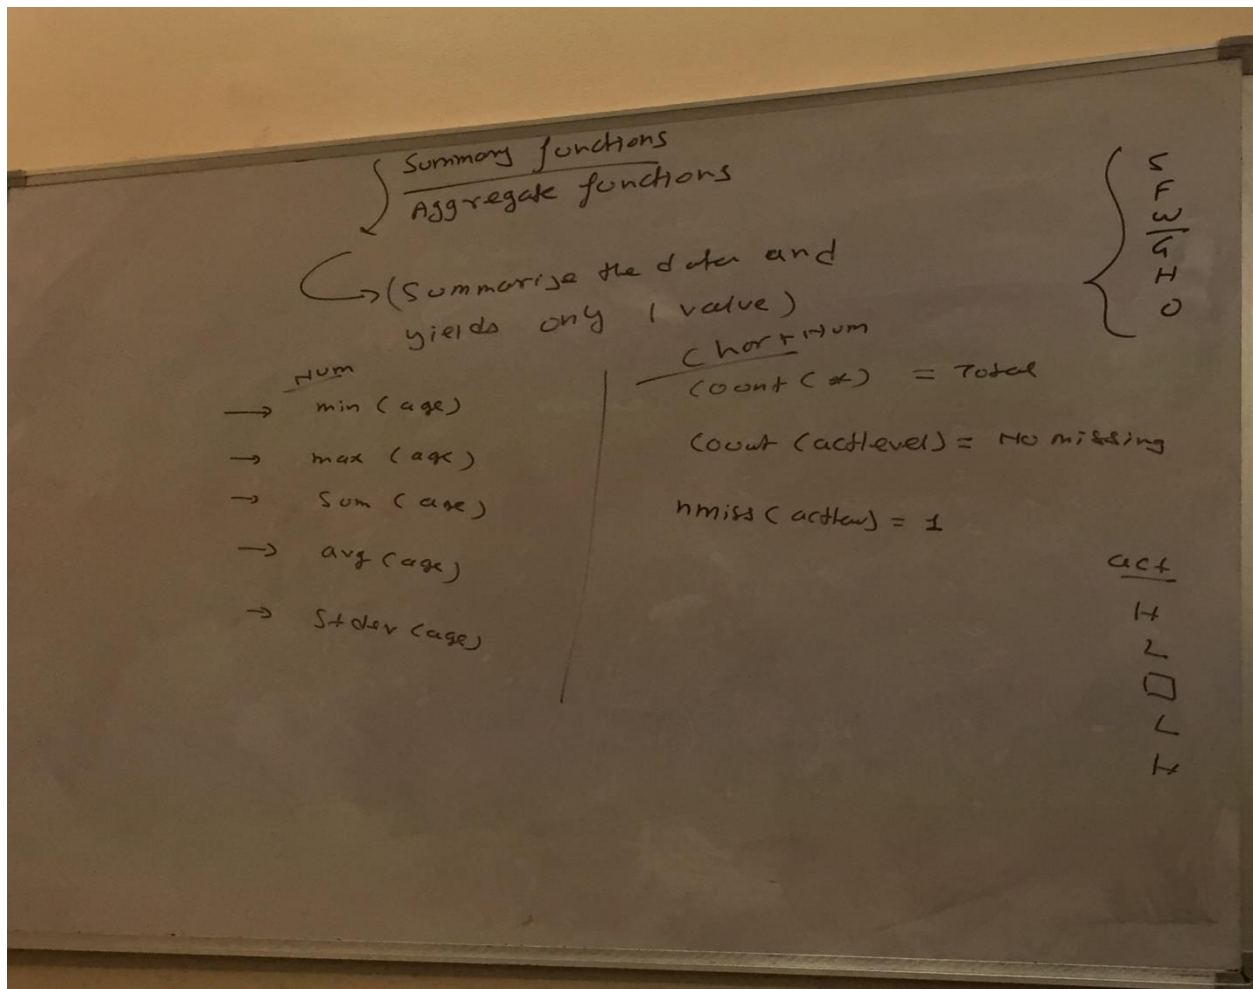 Summary functions
Aggregate functions
(Summarise the data and
yields only 1 value)
Num
min (age)
max (age)
Sum (age)
avg (age)
Stdev (age)
Char + Num
Count (*) = Total
Count (actlevel) = No missing
nmiss (actlev) = 1
S
F
W
G
H
O
act
H
L
L
H